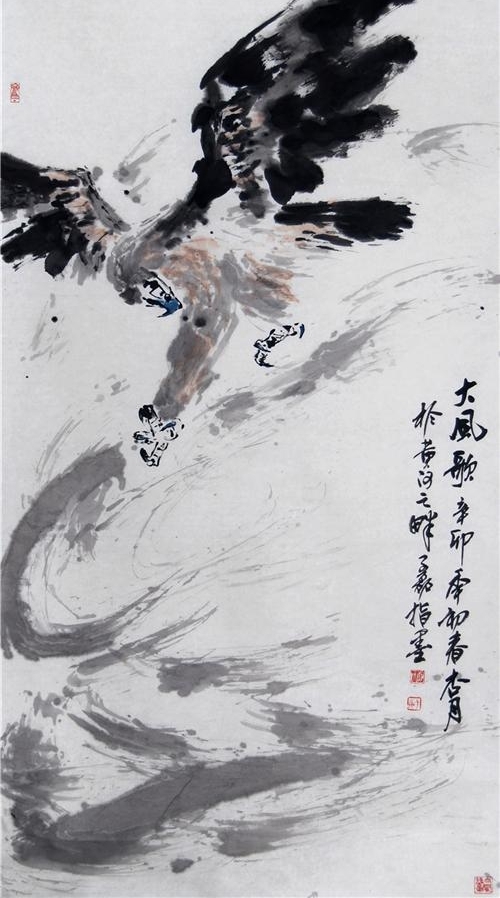 大風歌 辛卯季初春杏月
於黄河之畔 磊指墨